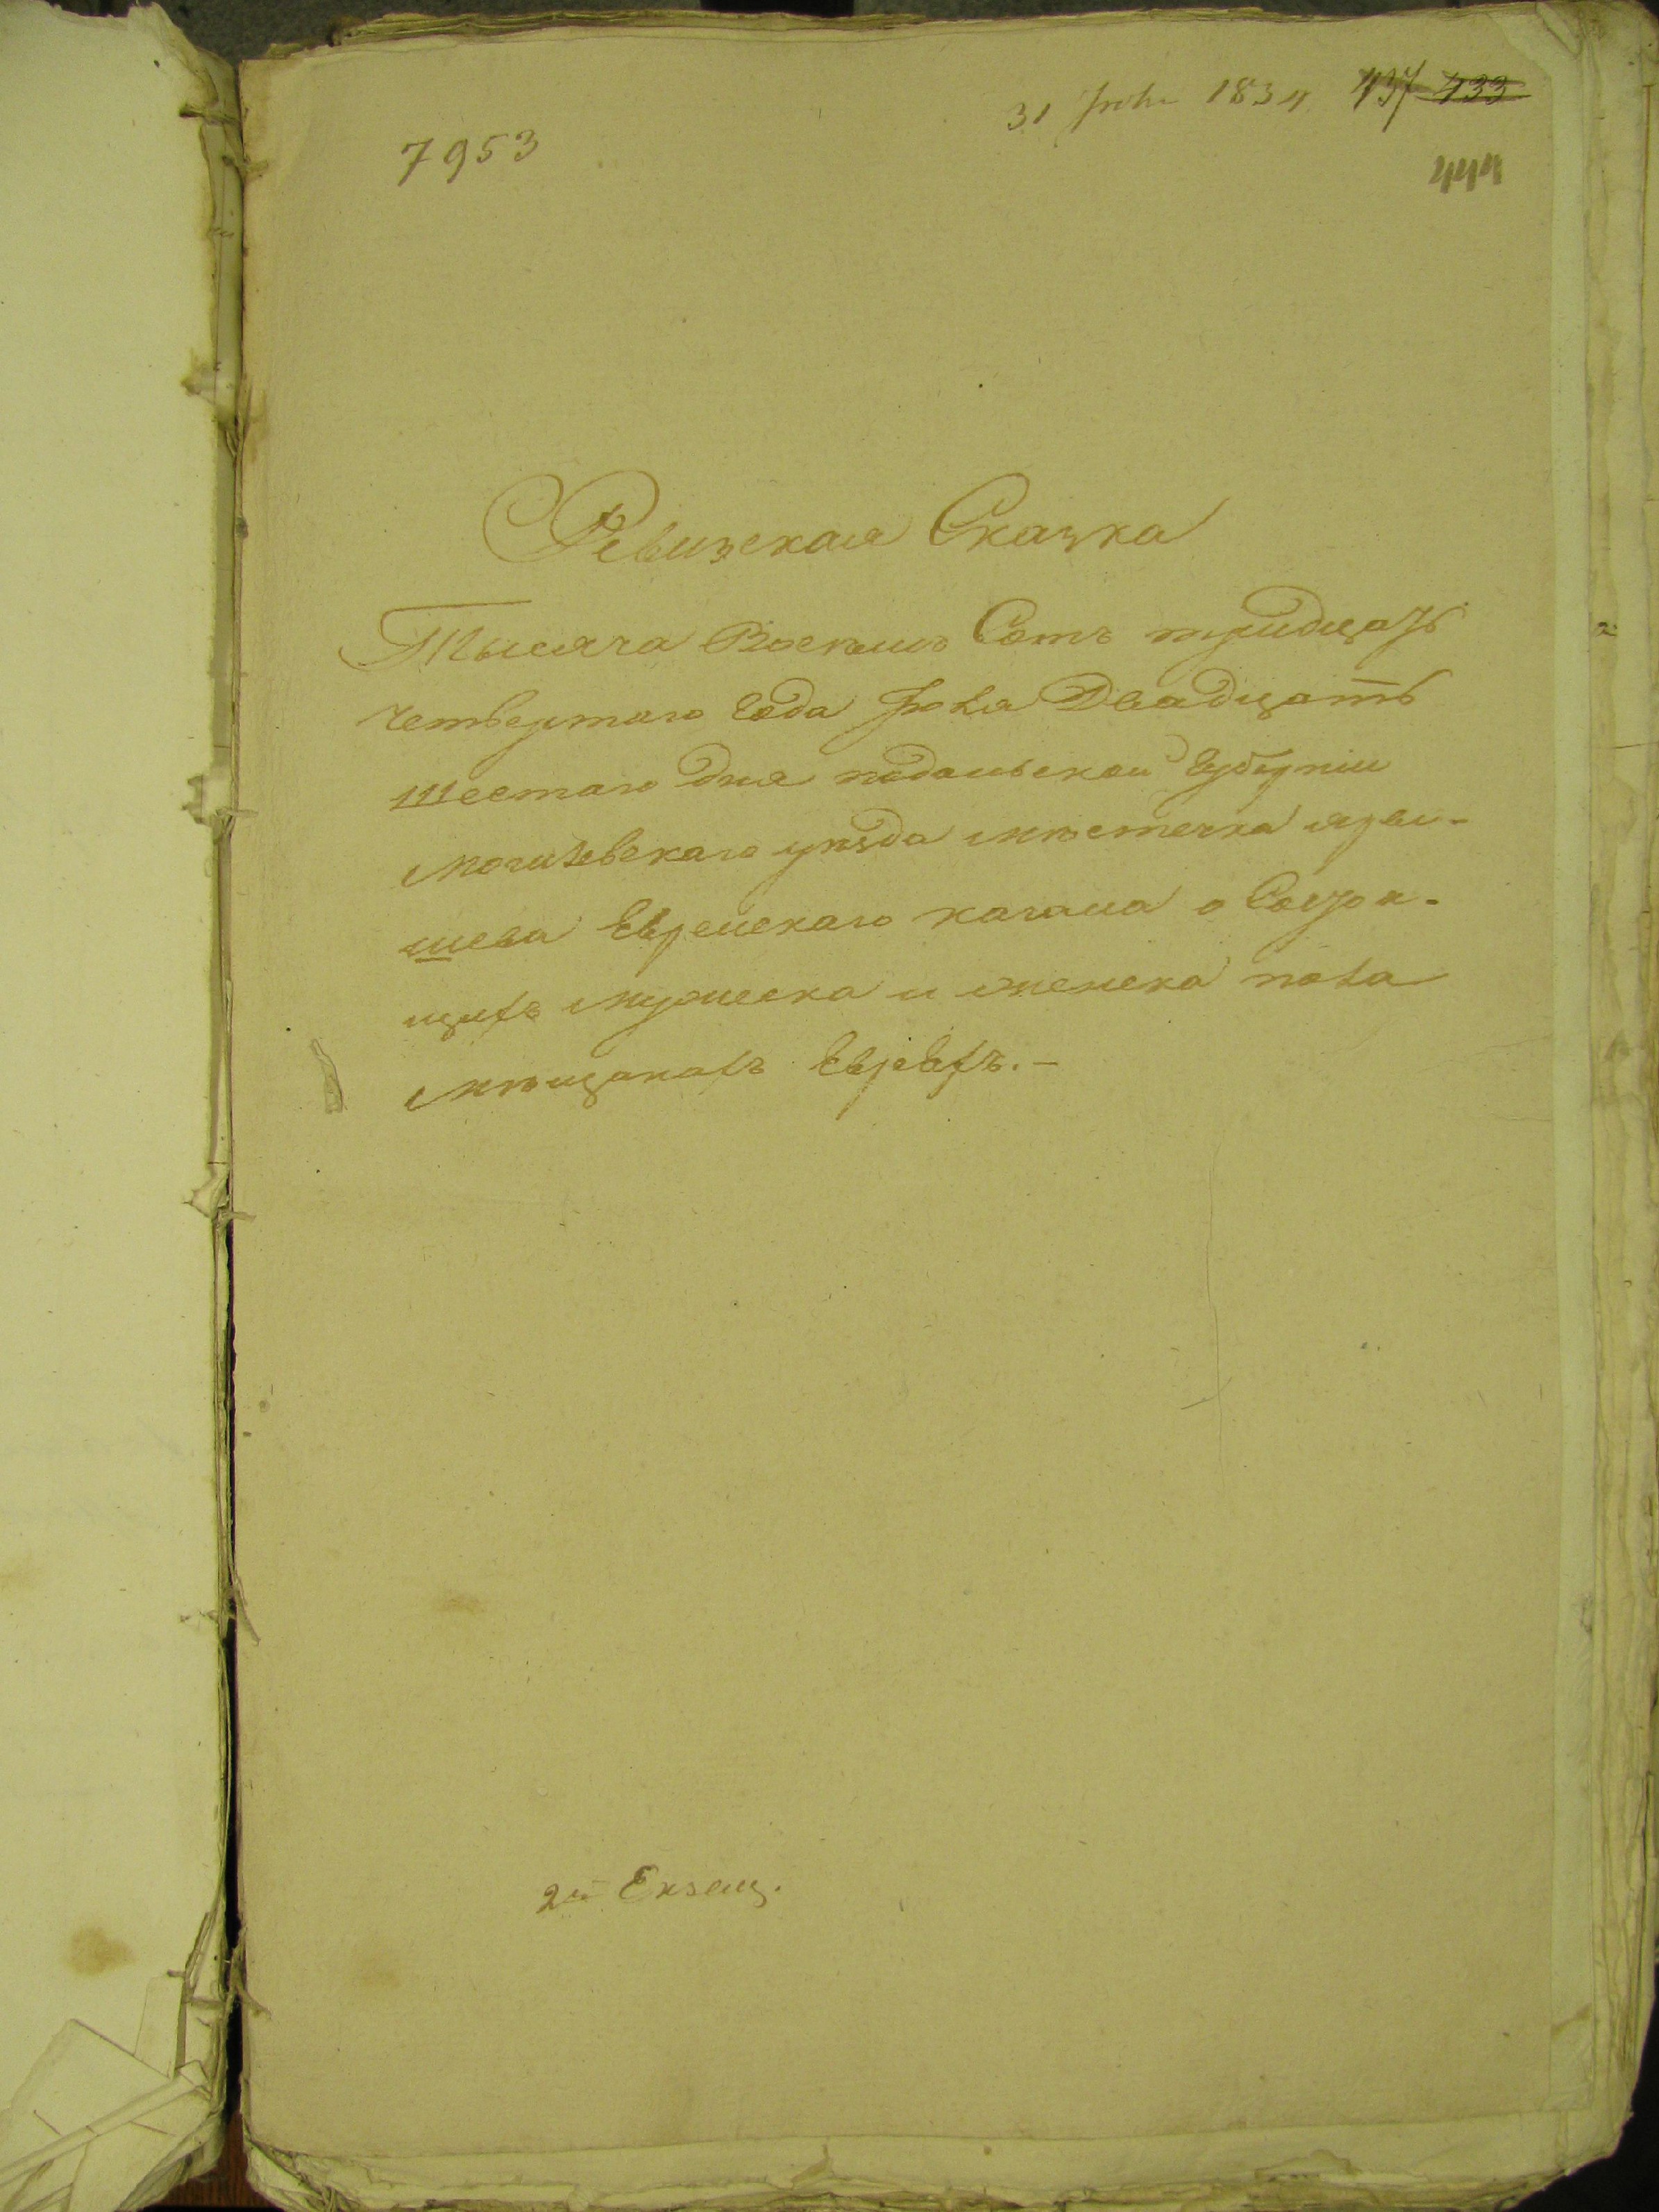 7953
31 Іюля 1834 437 433
444
Ревизская Сказка
Тысяча Восемь Сотъ тридцать
четвертаго Года Іюля Двадцать
шестаго дня подольской Губерніи
могилевскаго уезда мѣстечка яры-
шева Еврейскаго кагала о Состоя-
щихъ мужеска и женска пола
мѣщанахъ Евреяхъ. -
2й Екземп.